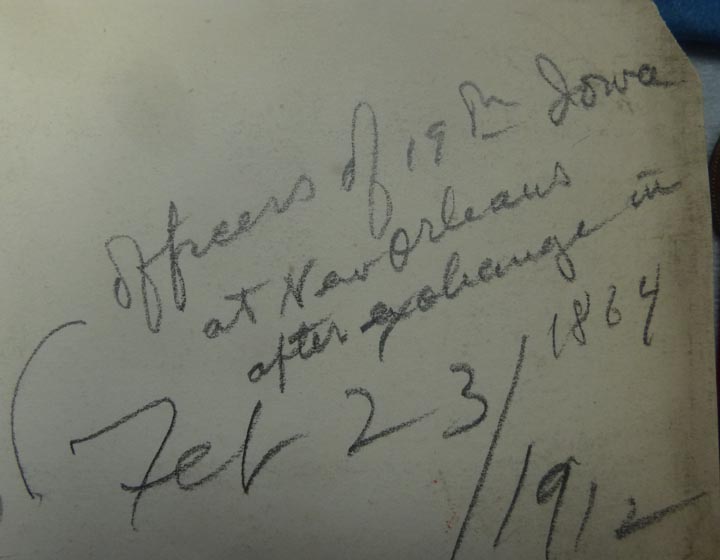 Officers of 19th Iowa
at New Orleans
after exchange in
1864
(Feb 23/1912